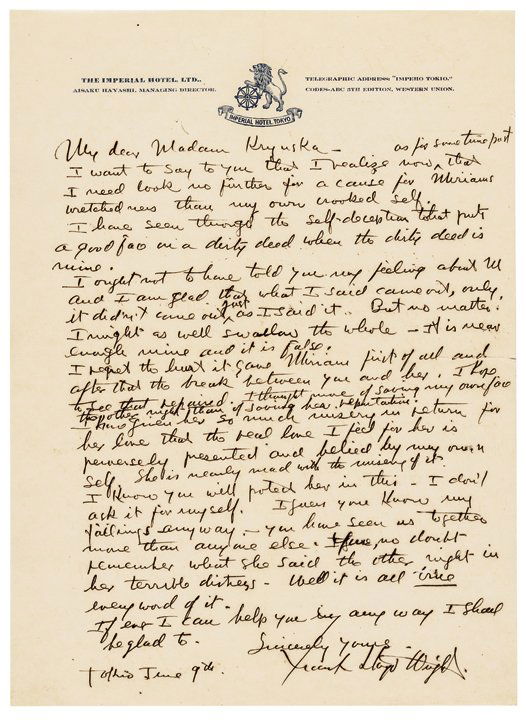 THE IMPERIAL HOTEL, LTD.,
AISAKU HAYASHI, MANAGING DIRECTOR.
TELEGRAPHIC ADDRESS: "IMPEHO TOKIO,"
CODES-ABC 5TH EDITION, WESTERN UNION.
IMPERIAL HOTEL, TOKYO
My dear Madam Krynska –
as for sometime past
I want to say to you that I realize now, that
I need look no further for a cause for Miriams
wretchedness than my own crooked self.
I have seen through the self-deception that puts
a good face on a dirty deed when the dirty deed is
mine.
I ought not to have told you my feeling about M
and I am glad that what I said came out, only,
it didn't come out just as I said it. But no matter.
I might as well swallow the whole – It is mean
enough mine and it is false.
I regret the hurt it gave Miriam first of all and
after that the break between you and her. I hope
to see that repaired. I thought more of saving my own face
the other night than of saving her reputation.
I have given her so much misery in return for
her love that the real love I feel for her is
perversely presented and belied by my own
self. She is nearly mad with the misery of it.
I know you will protect her in this – I don't
ask it for myself. I guess you know my
failings anyway – you have seen us together
more than anyone else. no doubt
remember what she said the other night in
her terrible distress – Well it is all true
every word of it.
If ever I can help you in any way I shall
be glad to.
Sincerely yours
Frank Lloyd Wright.
Tokio June 9th.